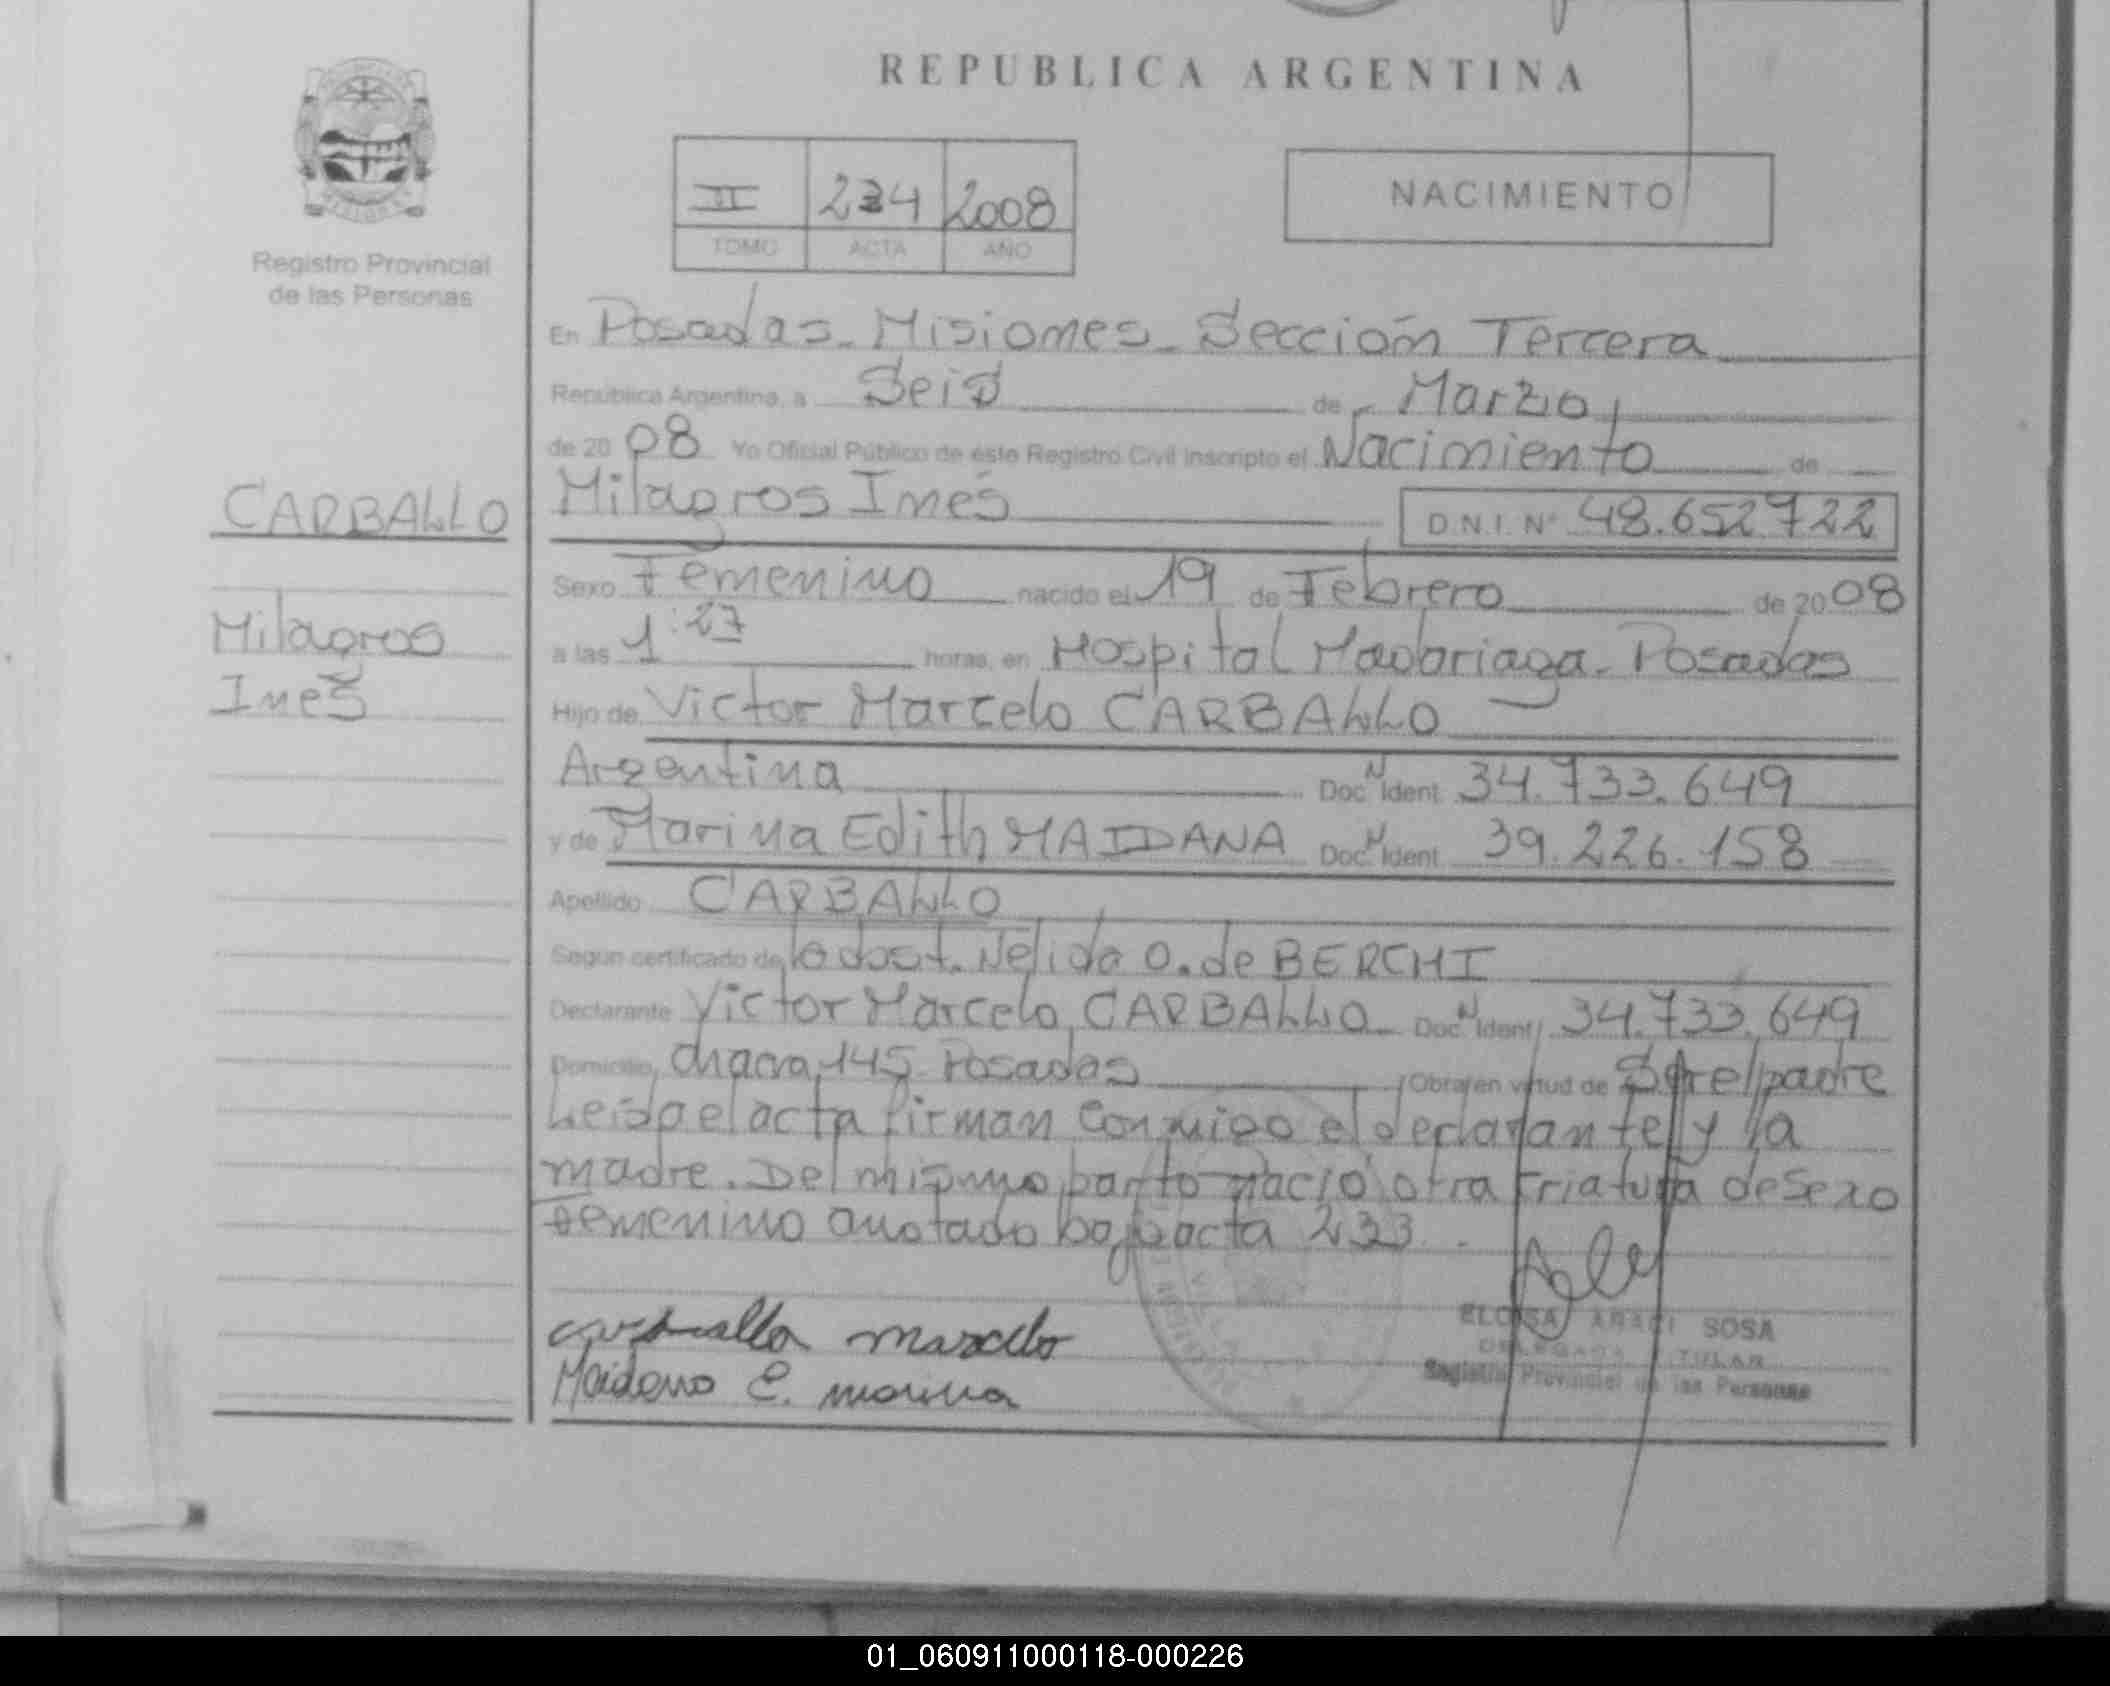 REPUBLICA ARGENTINA
II 234 2008
TOMO ACTA AÑO
NACIMIENTO
Registro Provincial
de las Personas
CARBALLO
Milagros
Inés
En Posadas - Misiones - Sección Tercera
República Argentina, a Seis de Marzo
de 2008 Yo Oficial Público de éste Registro Civil inscripto el Nacimiento de
Milagros Inés D.N.I. N° 48.652.722
Sexo Femenino nacido el 19 de Febrero de 2008
a las 1:27 horas, en Hospital Madariaga - Posadas
Hijo de Victor Marcelo CARBALLO
Argentina Doc N Ident 34.733.649
y de Marina Edith MAIDANA Doc N Ident 39.226.158
Apellido CARBALLO
Según certificado de la obst. Nélida O. de BERCHI
Declarante Victor Marcelo CARBALLO Doc N Ident 34.733.649
Domicilio chacra 145 Posadas Obra en virtud de Ser el padre
Leida el acta firman conmigo el declarante y la
madre. Del mismo parto nació otra criatura de sexo
femenino anotado bajo acta 233.
carballo marcelo
Maidana E. marina
ELOISA ARACI SOSA
DELEGADA TITULAR
Registro Provincial de las Personas
01_060911000118-000226